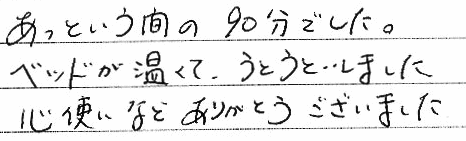 あっという間の90分でした。
ベッドが温くて、うとうと…しました
心使いなど ありがとうございました